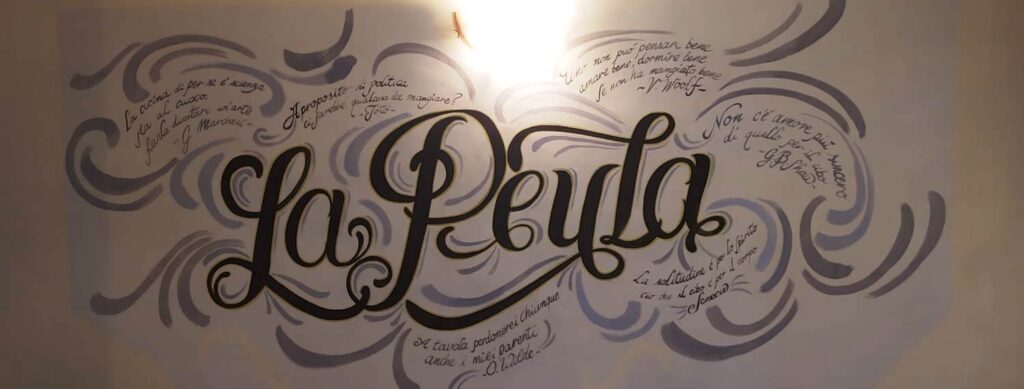 La cucina di per sé è scienza
sta al cuoco
farla diventare un'arte
- G. Marchesi -
A proposito di politica
ci sarebbe qualcosa da mangiare?
- Totò -
Uno non può pensar bene
amare bene, dormire bene
se non ha mangiato bene
- V. Woolf -
Non c'è amore più sincero
di quello per il cibo
- G.B. Shaw -
La Peula
La solitudine è per lo spirito
ciò che il cibo è per il corpo
Seneca
A tavola perdonerei chiunque
anche i miei parenti
- O. Wilde -